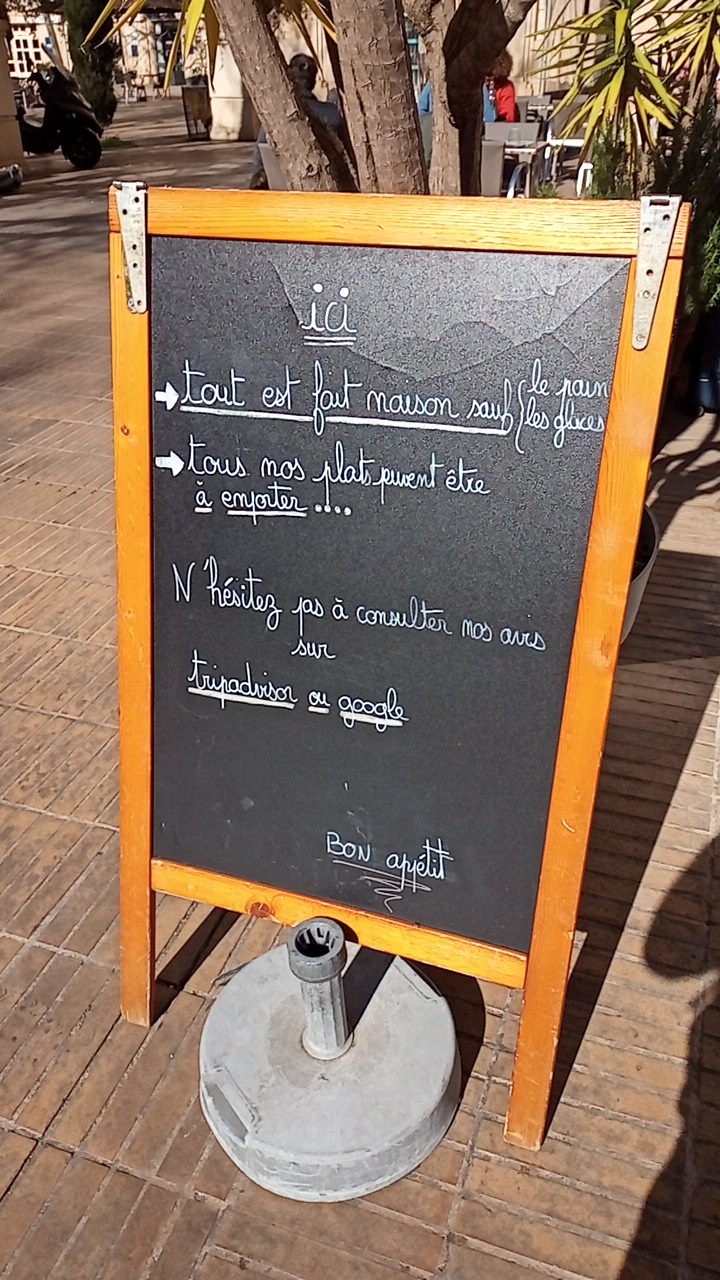 ici
→ tout est fait maison sauf { le pain
les glaces
→ tous nos plats peuvent être
à emporter ....
N'hésitez pas à consulter nos avis
sur
tripadvisor ou google
BON appétit